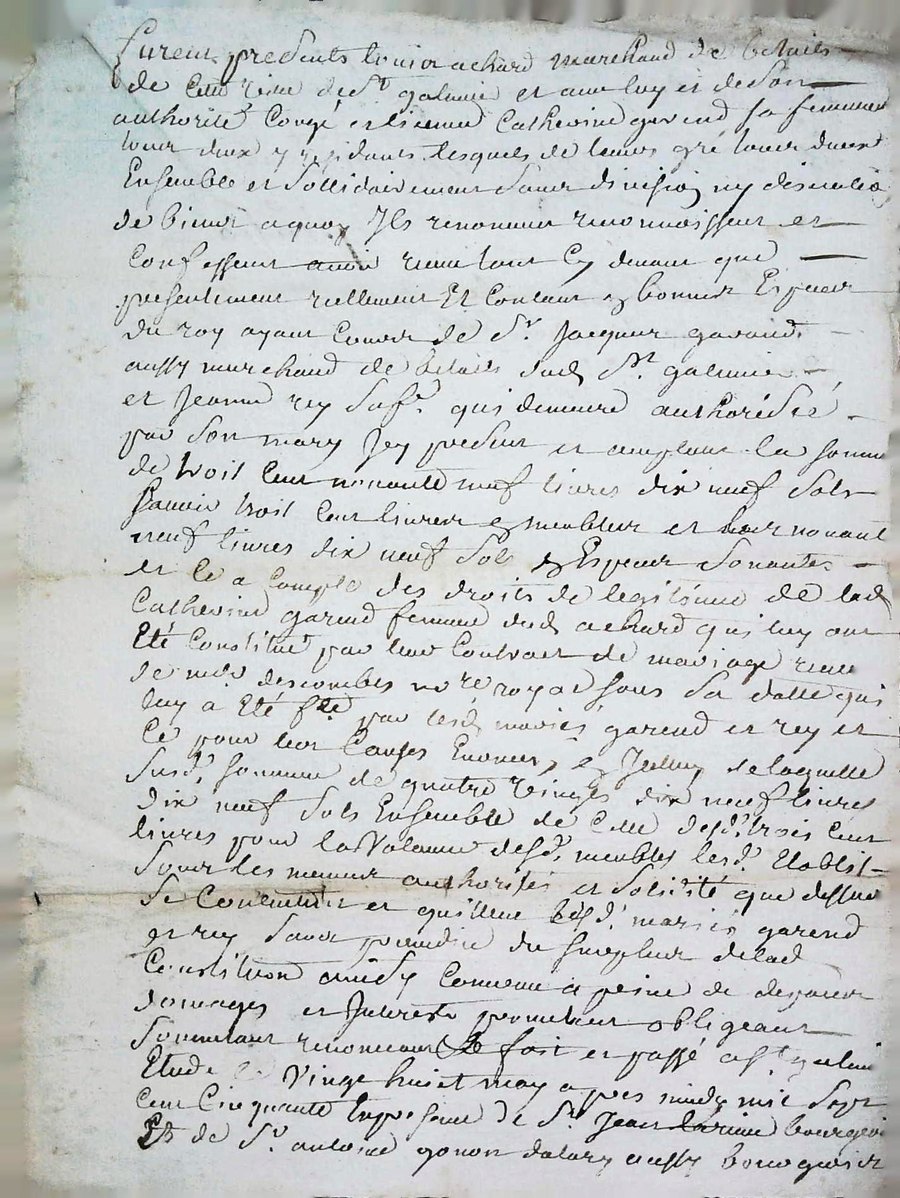 furent presents Louis achard marchand de betails
de cette ville de St galmier et avec luy et de son
authorité Congé et licence Catherine garend sa femme
tous deux y residants lesquels de leurs gré tous deux
Ensemble et sollidairement sans division ny discution
de biens a quoy Ils renoncent reconnoissent et
Confessent avoir receu tant Cy devant que
presentement réellement Et Contant en bonnes Especes
du roy ayant Cours de Sr. Jacques garend
aussy marchand de betails dud St. galmier
et Jeanne rey sa fe. qui demeure authorisée
par son mary Icy present et acceptant la somme
de trois Cent nonante neuf livres dix neuf sols
scavoir trois Cent livres en meubles et nonante
neuf livres dix neuf sols en Especes sonantes
et Ce a Compte des droits de legitime de lad
Catherine garend femme dud achard qui luy ont
Eté Constitué par leur Contract de mariage receu
de me descombes nore royal sous sa datte qui
luy à Eté fte par lesd mariés garend et rey et
Ce pour les Causes Enoncés en Icelluy de laquelle
susd. somme de quatre vingts dix neuf livres
dix neuf sols Ensemble de Celle desd. trois Cent
livres pour la valeur desd. meubles lesd.
sous les memes authorités et solidité que dessus
se Contentent et quittent lesd. mariés garend
et rey sans prejudice du surplus de lad
Constitution ainsy Convenu a peine de depens
domages et Interests promettant obligeant
soumettant renonceant fait et passé a St galmier
Etude le vingt huict may apres midy mil Sept
Cent Cinquante En presence de Sr. Jean bourgeois
Et de Sr antoine gonon dalary aussy bourgeois